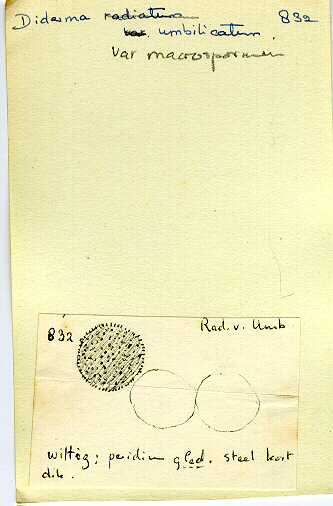 Diderma radiatum 832
var. umbilicatum.
Var macrosporum
832 Rad. v. Umb
wittig; peridium glad. steel kort
dik.